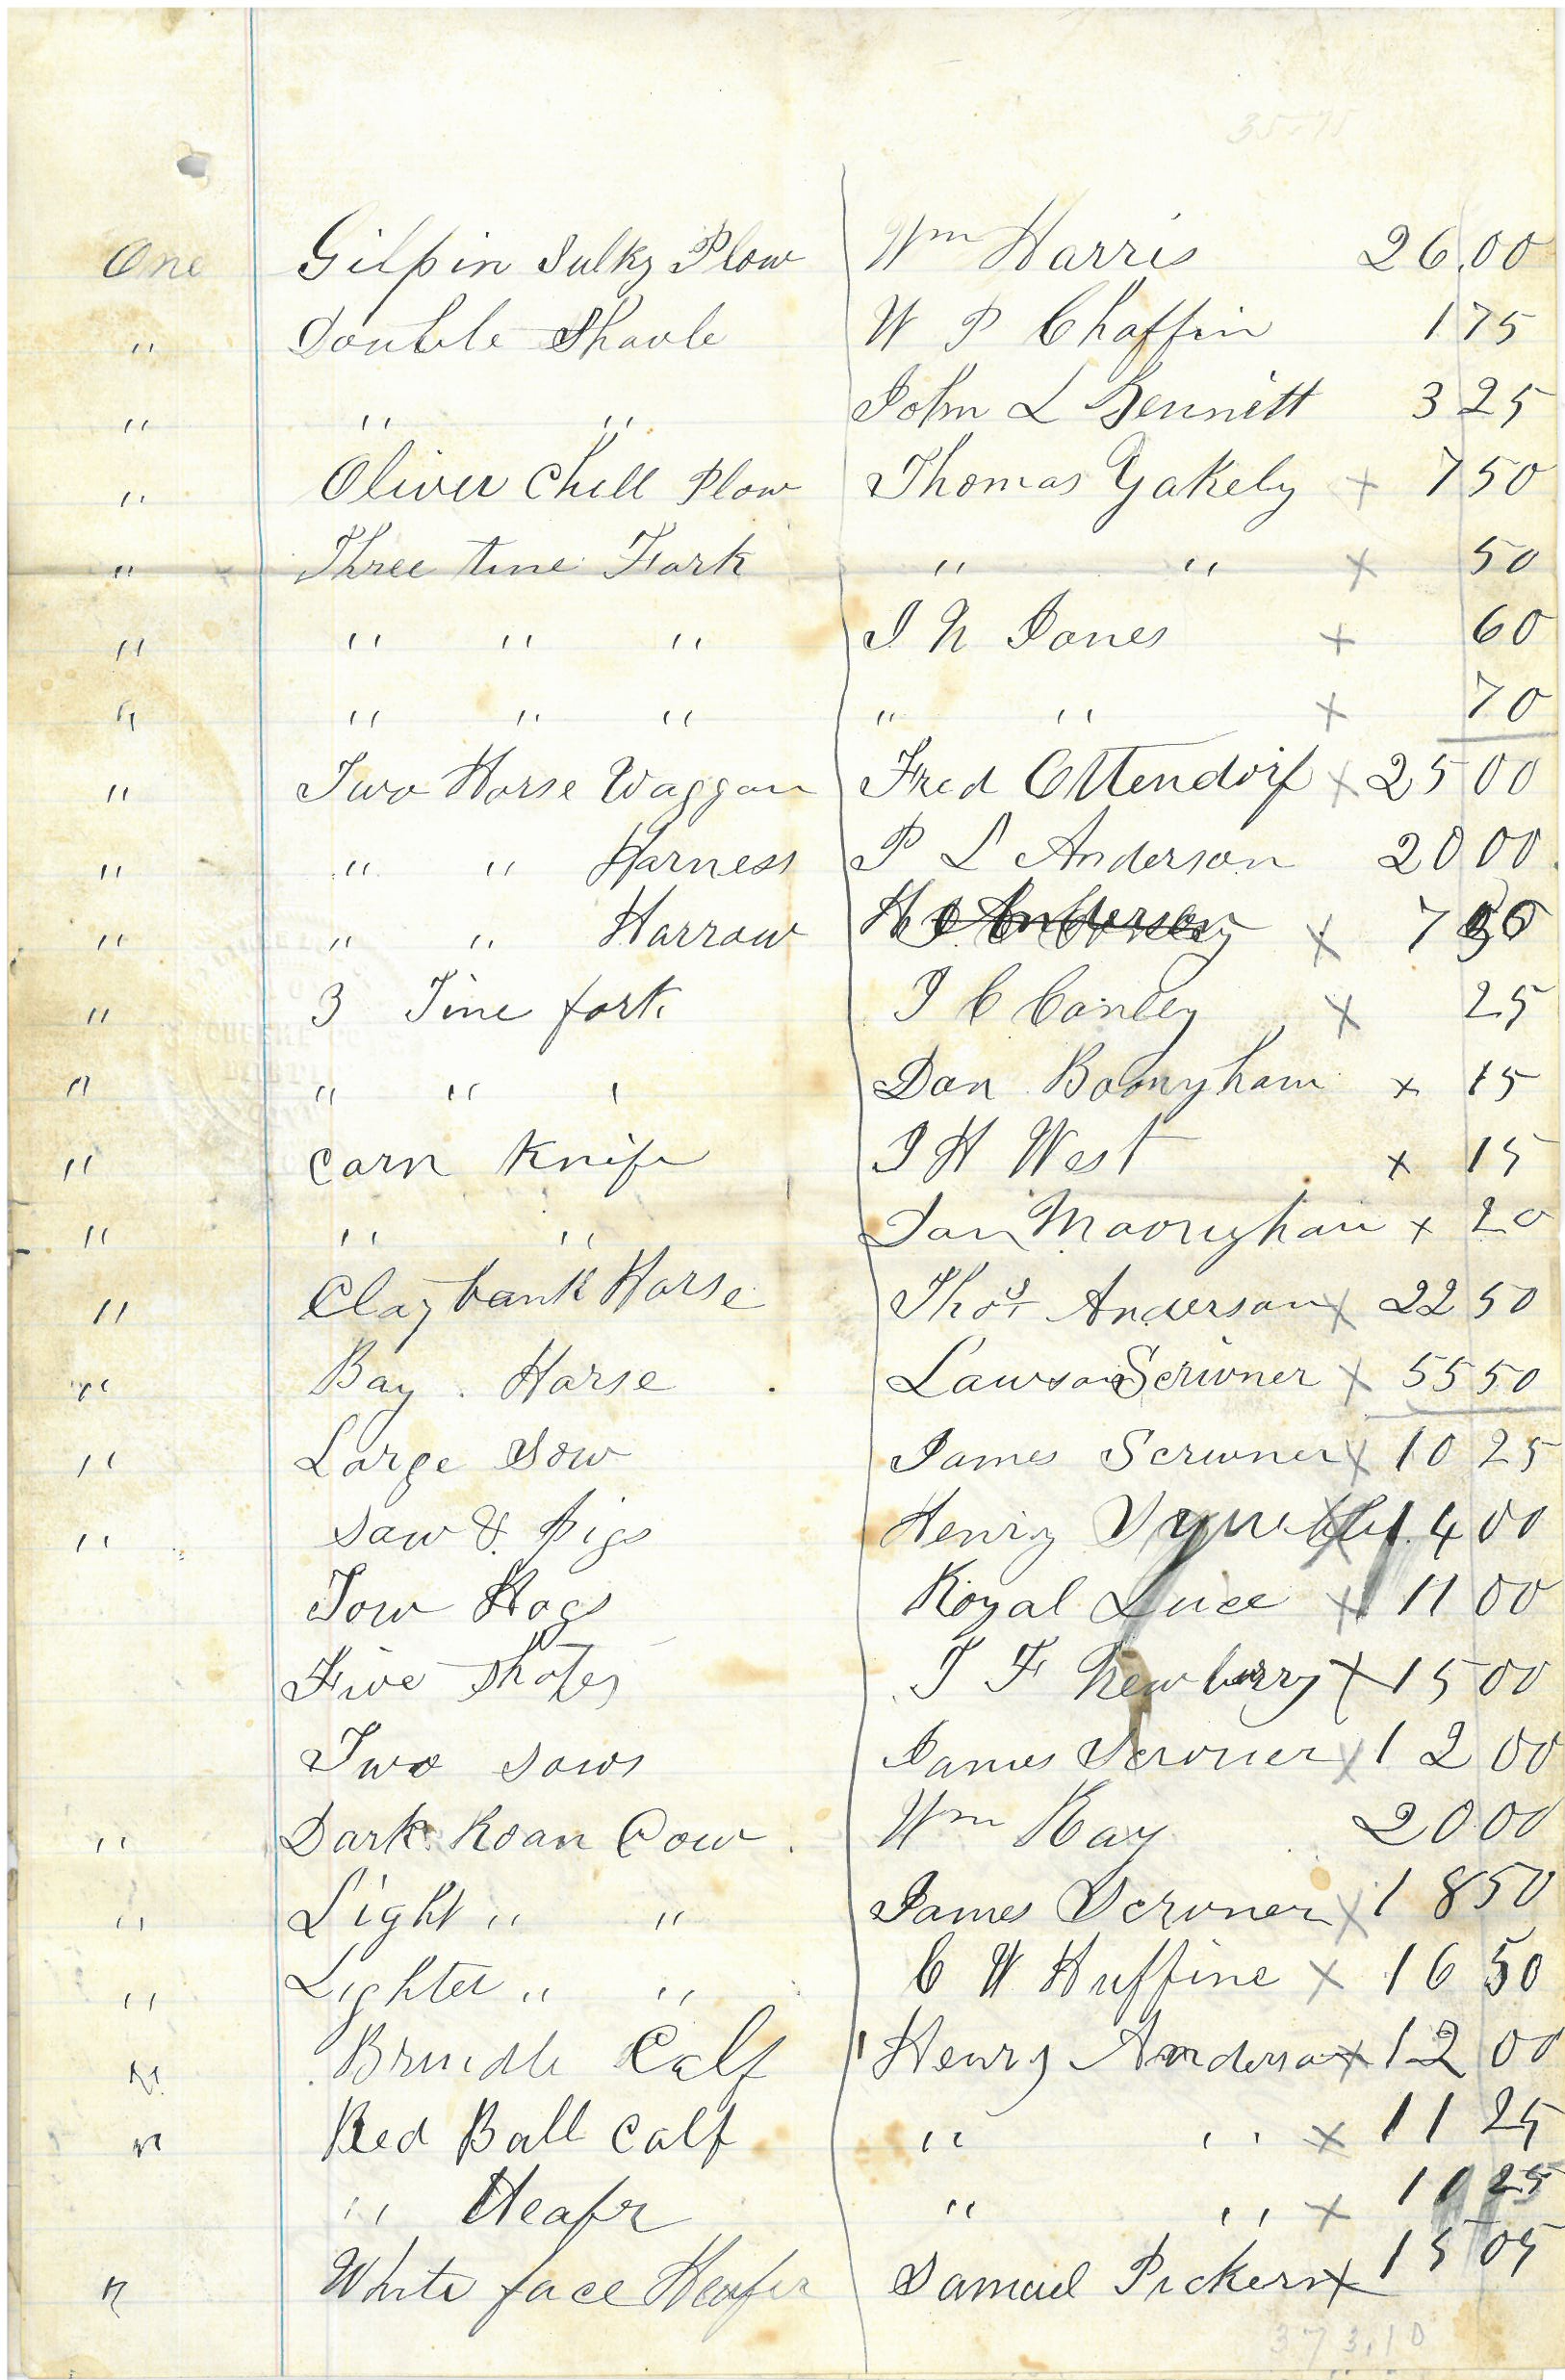 35-75
One Gilpin Sulky Plow Wm Harris 26.00
" Double Shovle W P Chaffin 1 75
" " " John L Bennitt 3 25
" Oliver Chill Plow Thomas Yakely x 7 50
" Three tine Fork " " x 50
" " " " J N Jones x 60
" " " " " " x 70
" Two Horse Waggon Fred Ottendorf x 25 00
" " " Harness P L Anderson 20 00
" " " Harrow H x 7
" 3 Tine fork J C Conley x 25
" " " ' Dan Boonyham x 15
" Corn Knife J H West x 15
" " " Dan Moonyham x 20
" Clay bank Horse Thos Anderson x 22 50
" Bay Horse Lawson Scrivner x 55 50
" Large Sow James Scrivner x 10 25
" Sow & pigs Henry x 14 00
Tow Hogs Royal Luce x 11 00
Five Shotes T F Newberry x 15 00
Two Sows James Scrivner x 12 00
" Dark Roan Cow Wm Ray 20 00
" Light " " James Scrivner x 18 50
" Lighter " " C W Huffine x 16 50
" Brindle Calf Henry Anderson x 12 00
" Red Ball Calf " " x 11 25
" Heafr " " x 11 25
" White face Heafer Samuel Pickern x 15 05
373.10